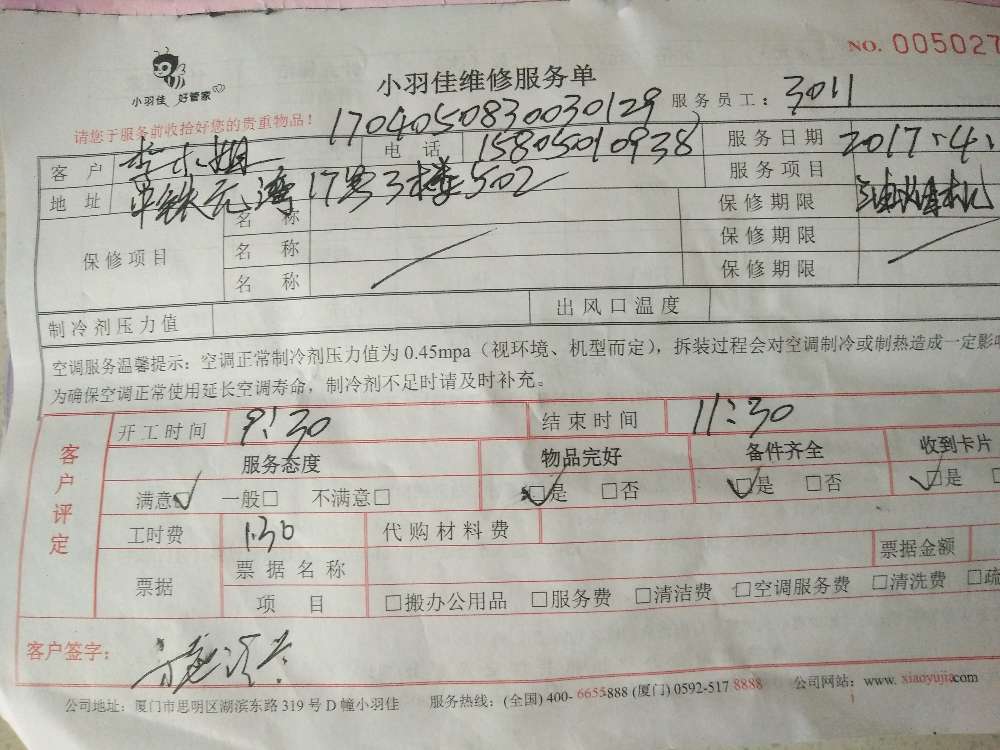 NO. 005027
小羽佳 好管家
小羽佳维修服务单
请您于服务前收拾好您的贵重物品！
1704050830030129
服务员工： 3011
客 户 李小姐 电 话 15805010938 服务日期 2017.4.
地 址 中铁元湾17号3楼502 服务项目 油烟机
保修项目 名 称 保修期限
名 称 保修期限
名 称 保修期限
制冷剂压力值 出风口温度
空调服务温馨提示：空调正常制冷剂压力值为 0.45mpa（视环境、机型而定），拆装过程会对空调制冷或制热造成一定影响
为确保空调正常使用延长空调寿命，制冷剂不足时请及时补充。
客户评定
开工时间 9:30 结束时间 11:30
服务态度 物品完好 备件齐全 收到卡片
满意☑ 一般□ 不满意□ ☑是 □否 ☑是 □否 ☑是
工时费 130 代购材料费
票据 票据名称 票据金额
项 目 □搬办公用品 □服务费 □清洁费 □空调服务费 □清洗费 □疏
客户签字：
公司地址：厦门市思明区湖滨东路 319 号 D 幢小羽佳 服务热线：(全国) 400-6655888 (厦门) 0592-517 8888 公司网站：www.xiaoyujia.com
1